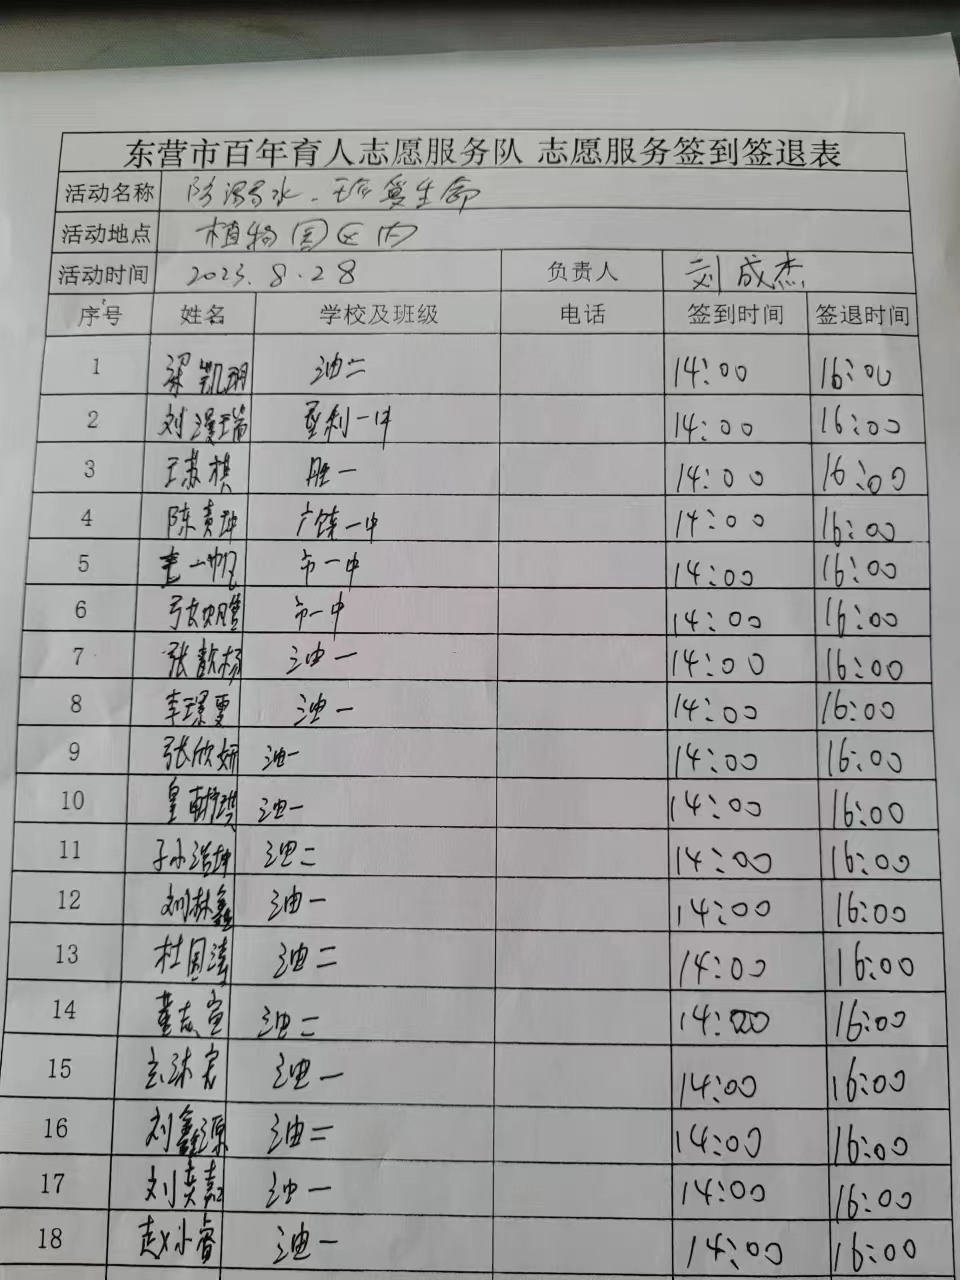 东营市百年育人志愿服务队 志愿服务签到签退表
活动名称 防溺水 生命
活动地点 植物园区内
活动时间 2023.8.28 负责人 刘成杰
序号 姓名 学校及班级 电话 签到时间 签退时间
1 梁凯玥 油二 14:00 16:00
2 刘漫瑞 垦利一中 14:00 16:00
3 王苏棋 胜一 14:00 16:00
4 陈贵坤 广饶一中 14:00 16:00
5 一帆 市一中 14:00 16:00
6 市一中 14:00 16:00
7 张歆杨 油一 14:00 16:00
8 李璟雯 油一 14:00 16:00
9 张欣妍 油一 14:00 16:00
10 油一 14:00 16:00
11 油二 14:00 16:00
12 刘林鑫 油一 14:00 16:00
13 杜国涛 油二 14:00 16:00
14 董志宣 油二 14:00 16:00
15 油一 14:00 16:00
16 刘鑫源 油二 14:00 16:00
17 刘奕嘉 油一 14:00 16:00
18 赵小睿 油一 14:00 16:00